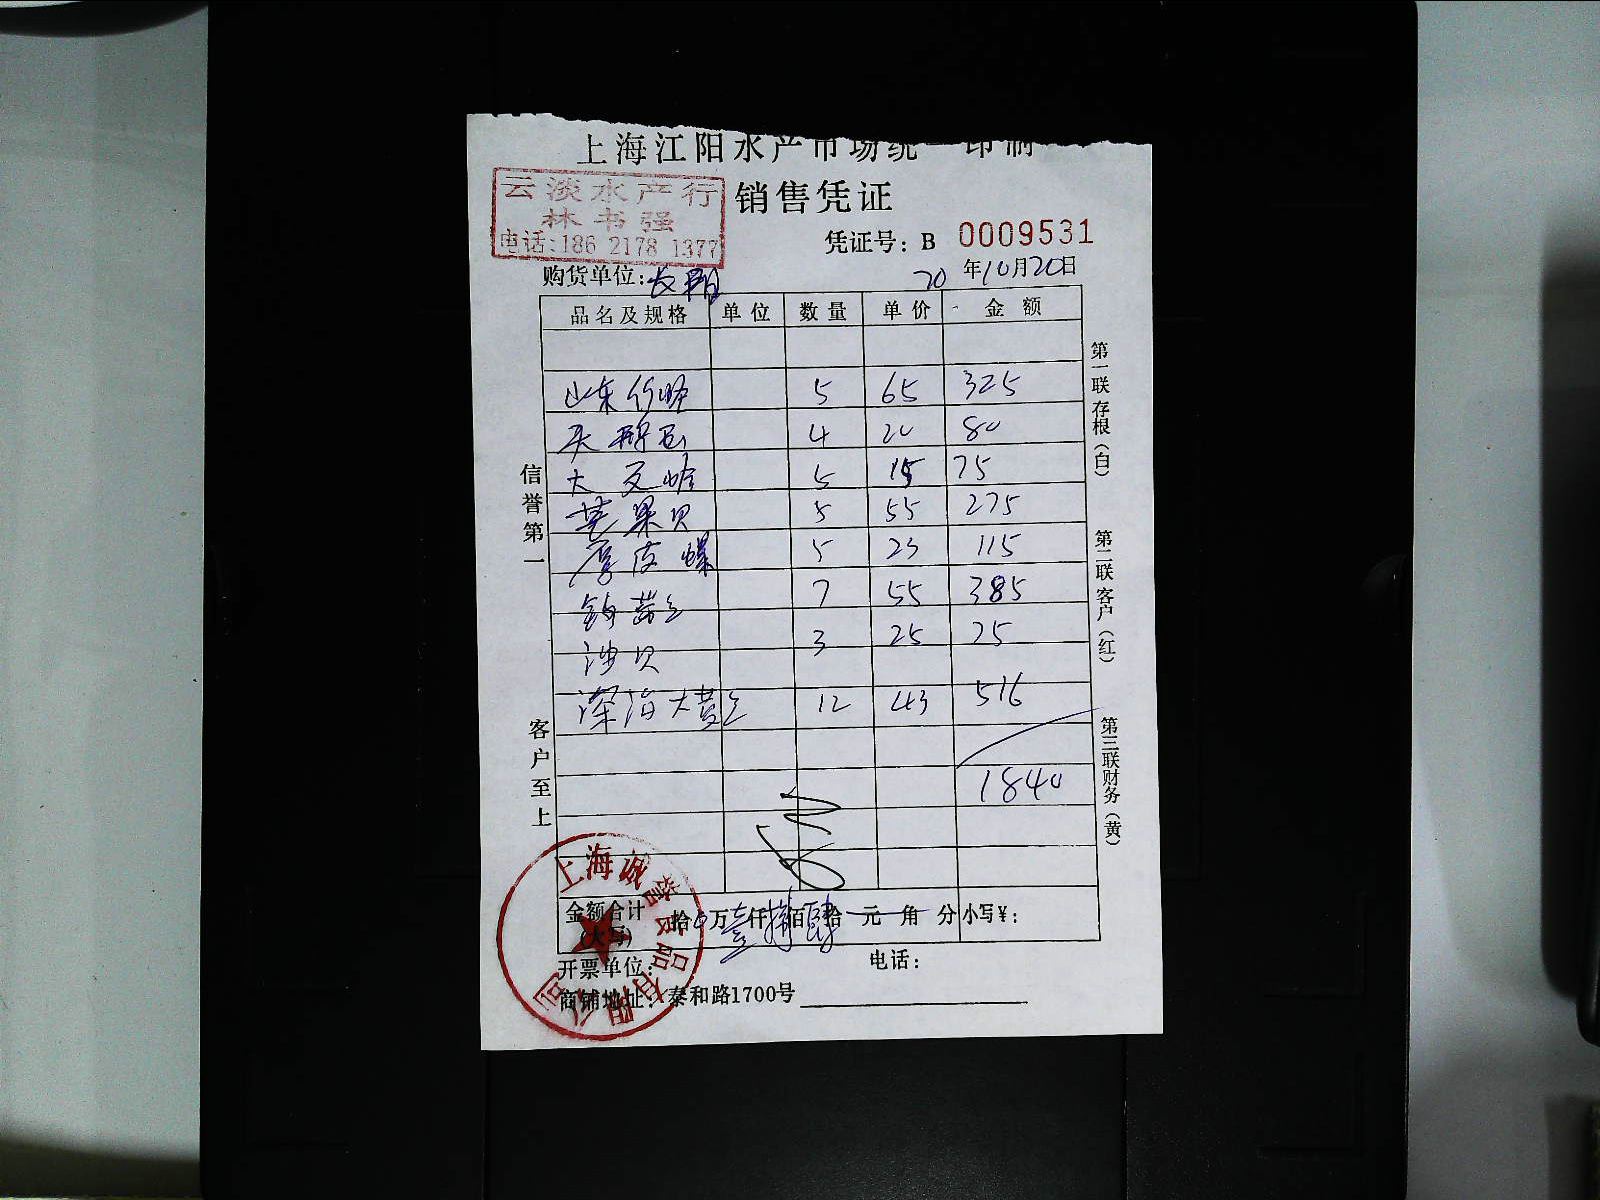 上海江阳水产市场统一印制
云淡水产行
林书强
电话:186 2178 1377
销售凭证
凭证号: B 0009531
购货单位:
20年10月20日
品名及规格 单位 数量 单价 金额
山东 5 65 325
4 20 80
大 5 15 75
苹果贝 5 55 275
厚皮螺 5 23 115
7 55 385
沙贝 3 25 75
深海大黄 12 43 516
1840
信誉第一
客户至上
第一联存根(白)
第二联客户(红)
第三联财务(黄)
金额合计(大写) 拾万壹仟捌佰肆拾元角分 小写¥:
开票单位: 电话:
商铺地址: 泰和路1700号
上海诚誉食品有限公司